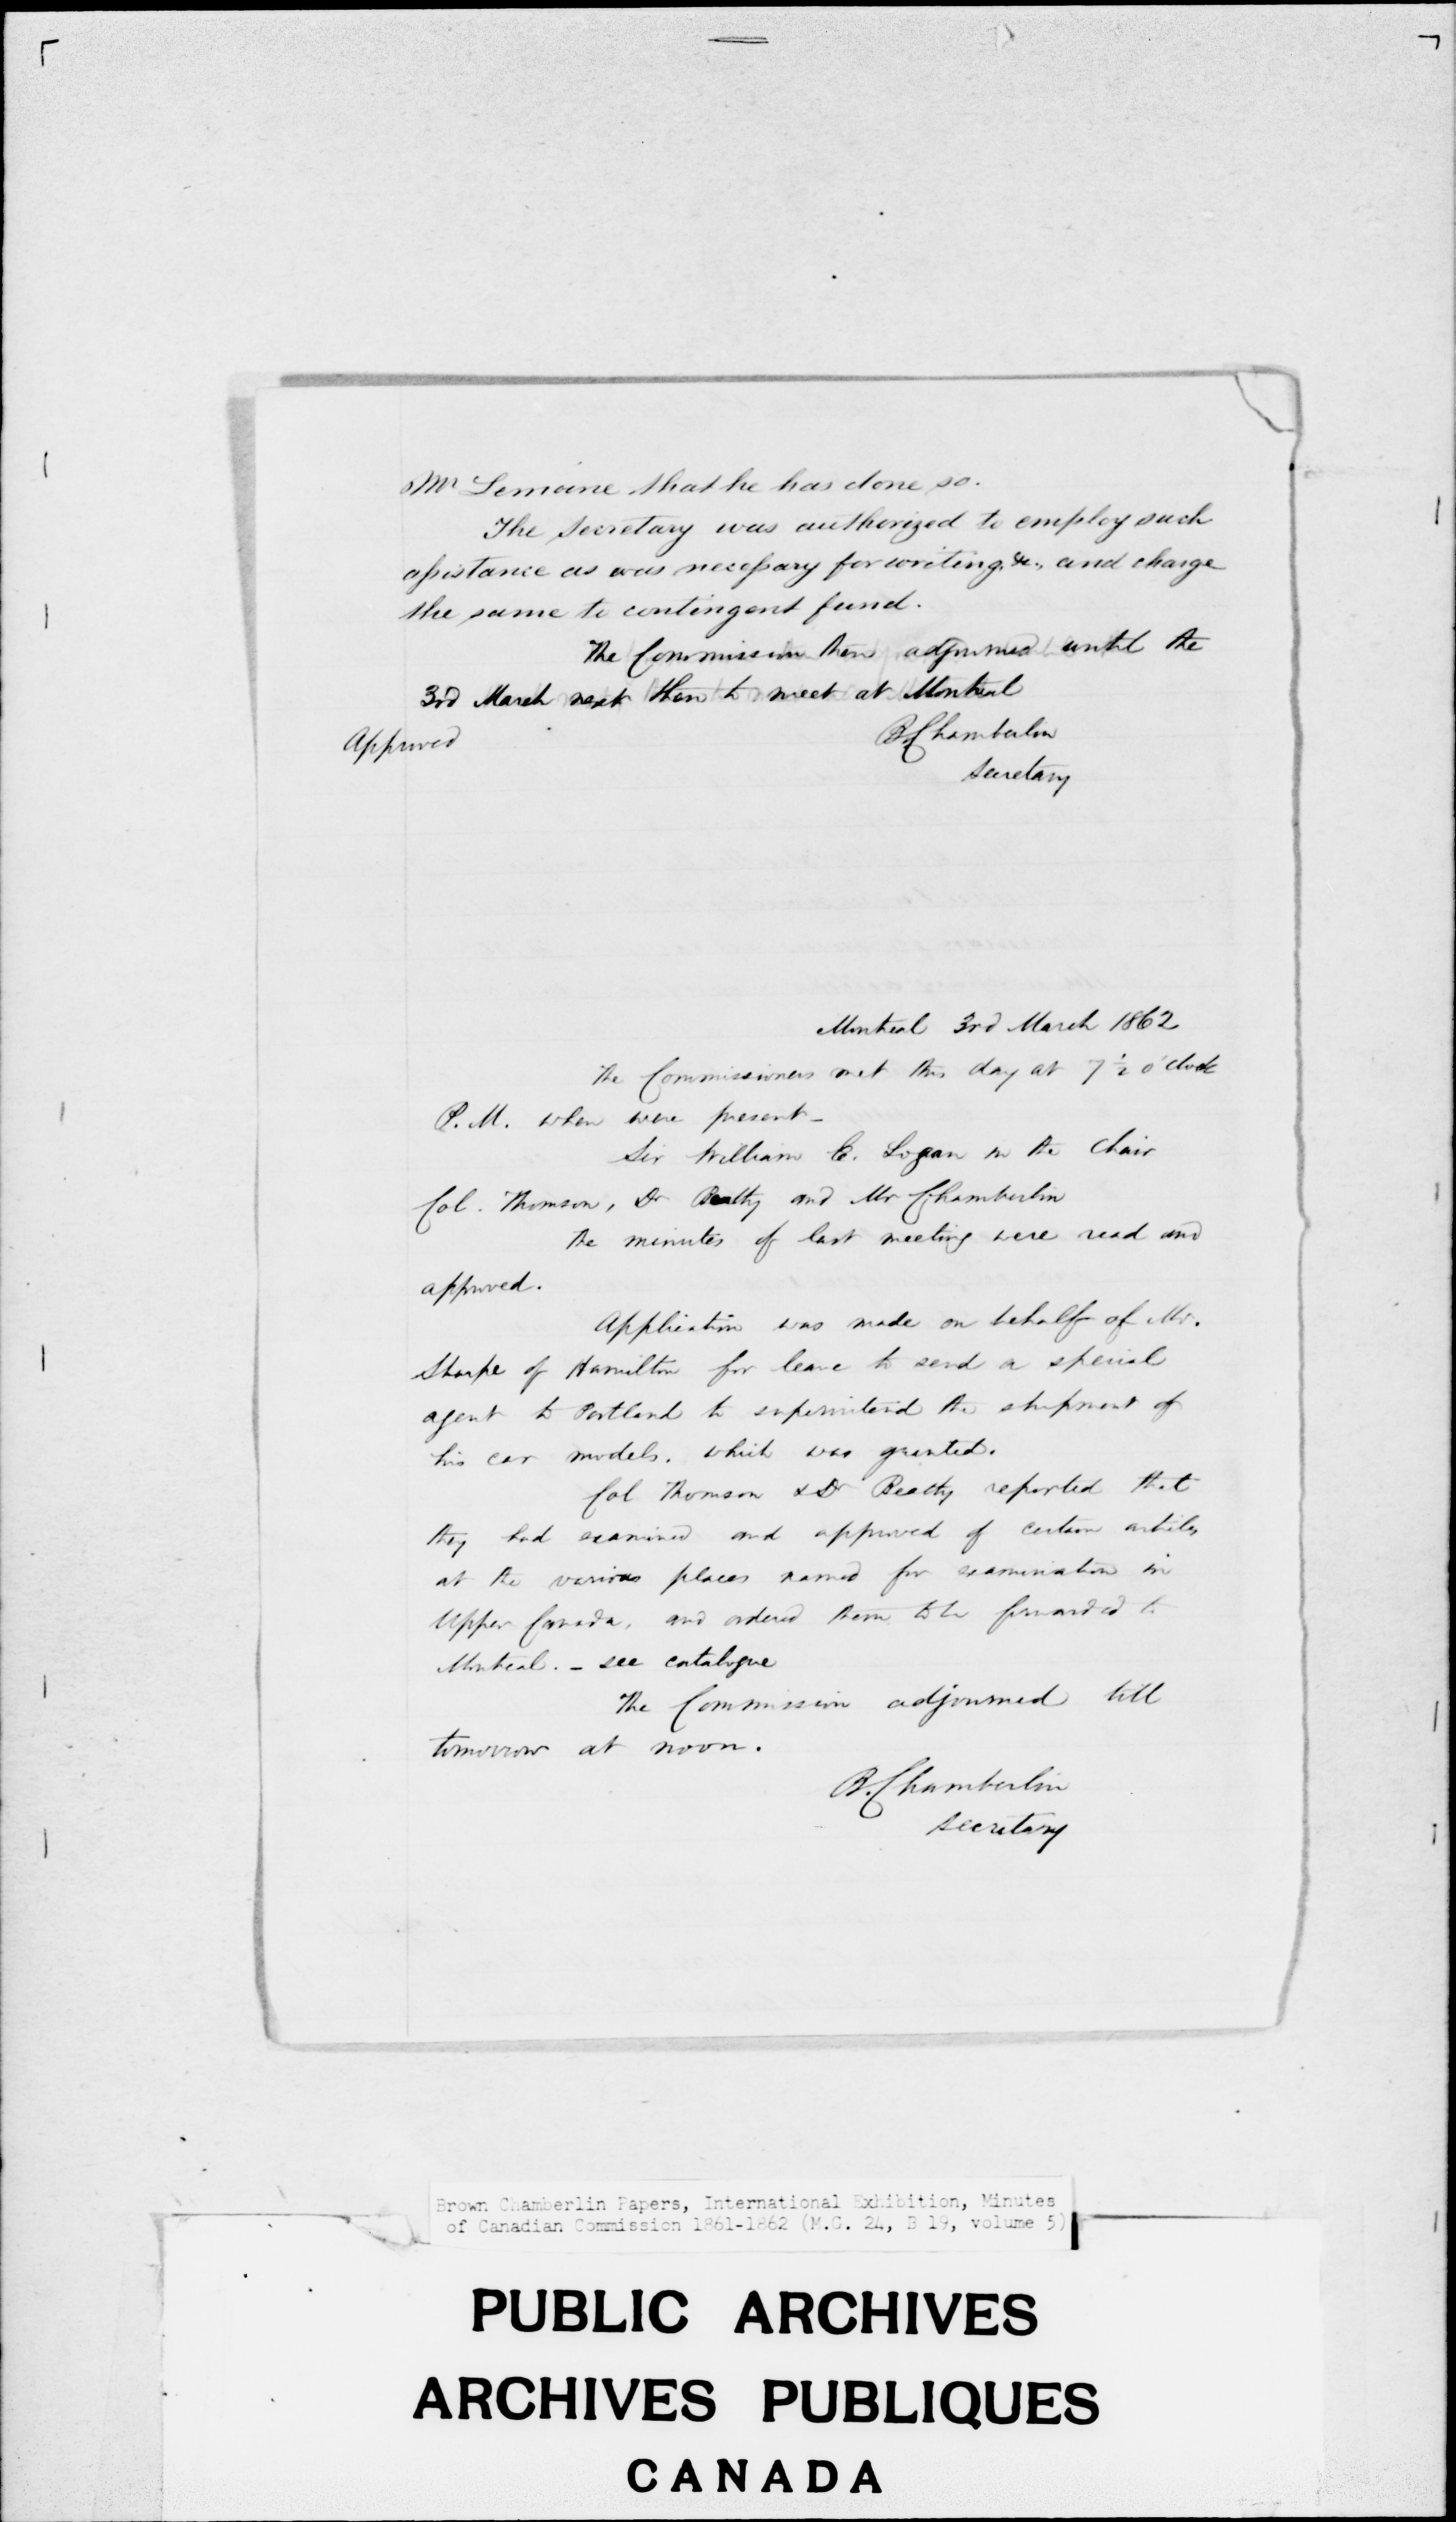 Mr Lemoine that he has done so.
The Secretary was authorized to employ such
assistance as was necessary for writing, &c., and charge
the same to contingent fund.
The Commission then adjourned until the
3rd March next then to meet at Montreal
Approved
B Chamberlin
Secretary
Montreal 3rd March 1862
The Commissioners met this day at 7 1/2 o'clock
P.M. when were present –
Sir William E. Logan in the Chair
Col. Thomson, Dr Beatty and Mr Chamberlin
The minutes of last meeting were read and
approved.
Application was made on behalf of Mr.
Sharpe of Hamilton for leave to send a special
agent to Portland to superintend the shipment of
his car models. which was granted.
Col Thomson & Dr Beatty reported that
they had examined and approved of certain articles
at the various places named for examination in
Upper Canada, and ordered them to be forwarded to
Montreal. – see catalogue
The Commission adjourned till
tomorrow at noon.
B. Chamberlin
Secretary
Brown Chamberlin Papers, International Exhibition, Minutes
of Canadian Commission 1861-1862 (M.G. 24, B 19, volume 5)
PUBLIC ARCHIVES
ARCHIVES PUBLIQUES
CANADA